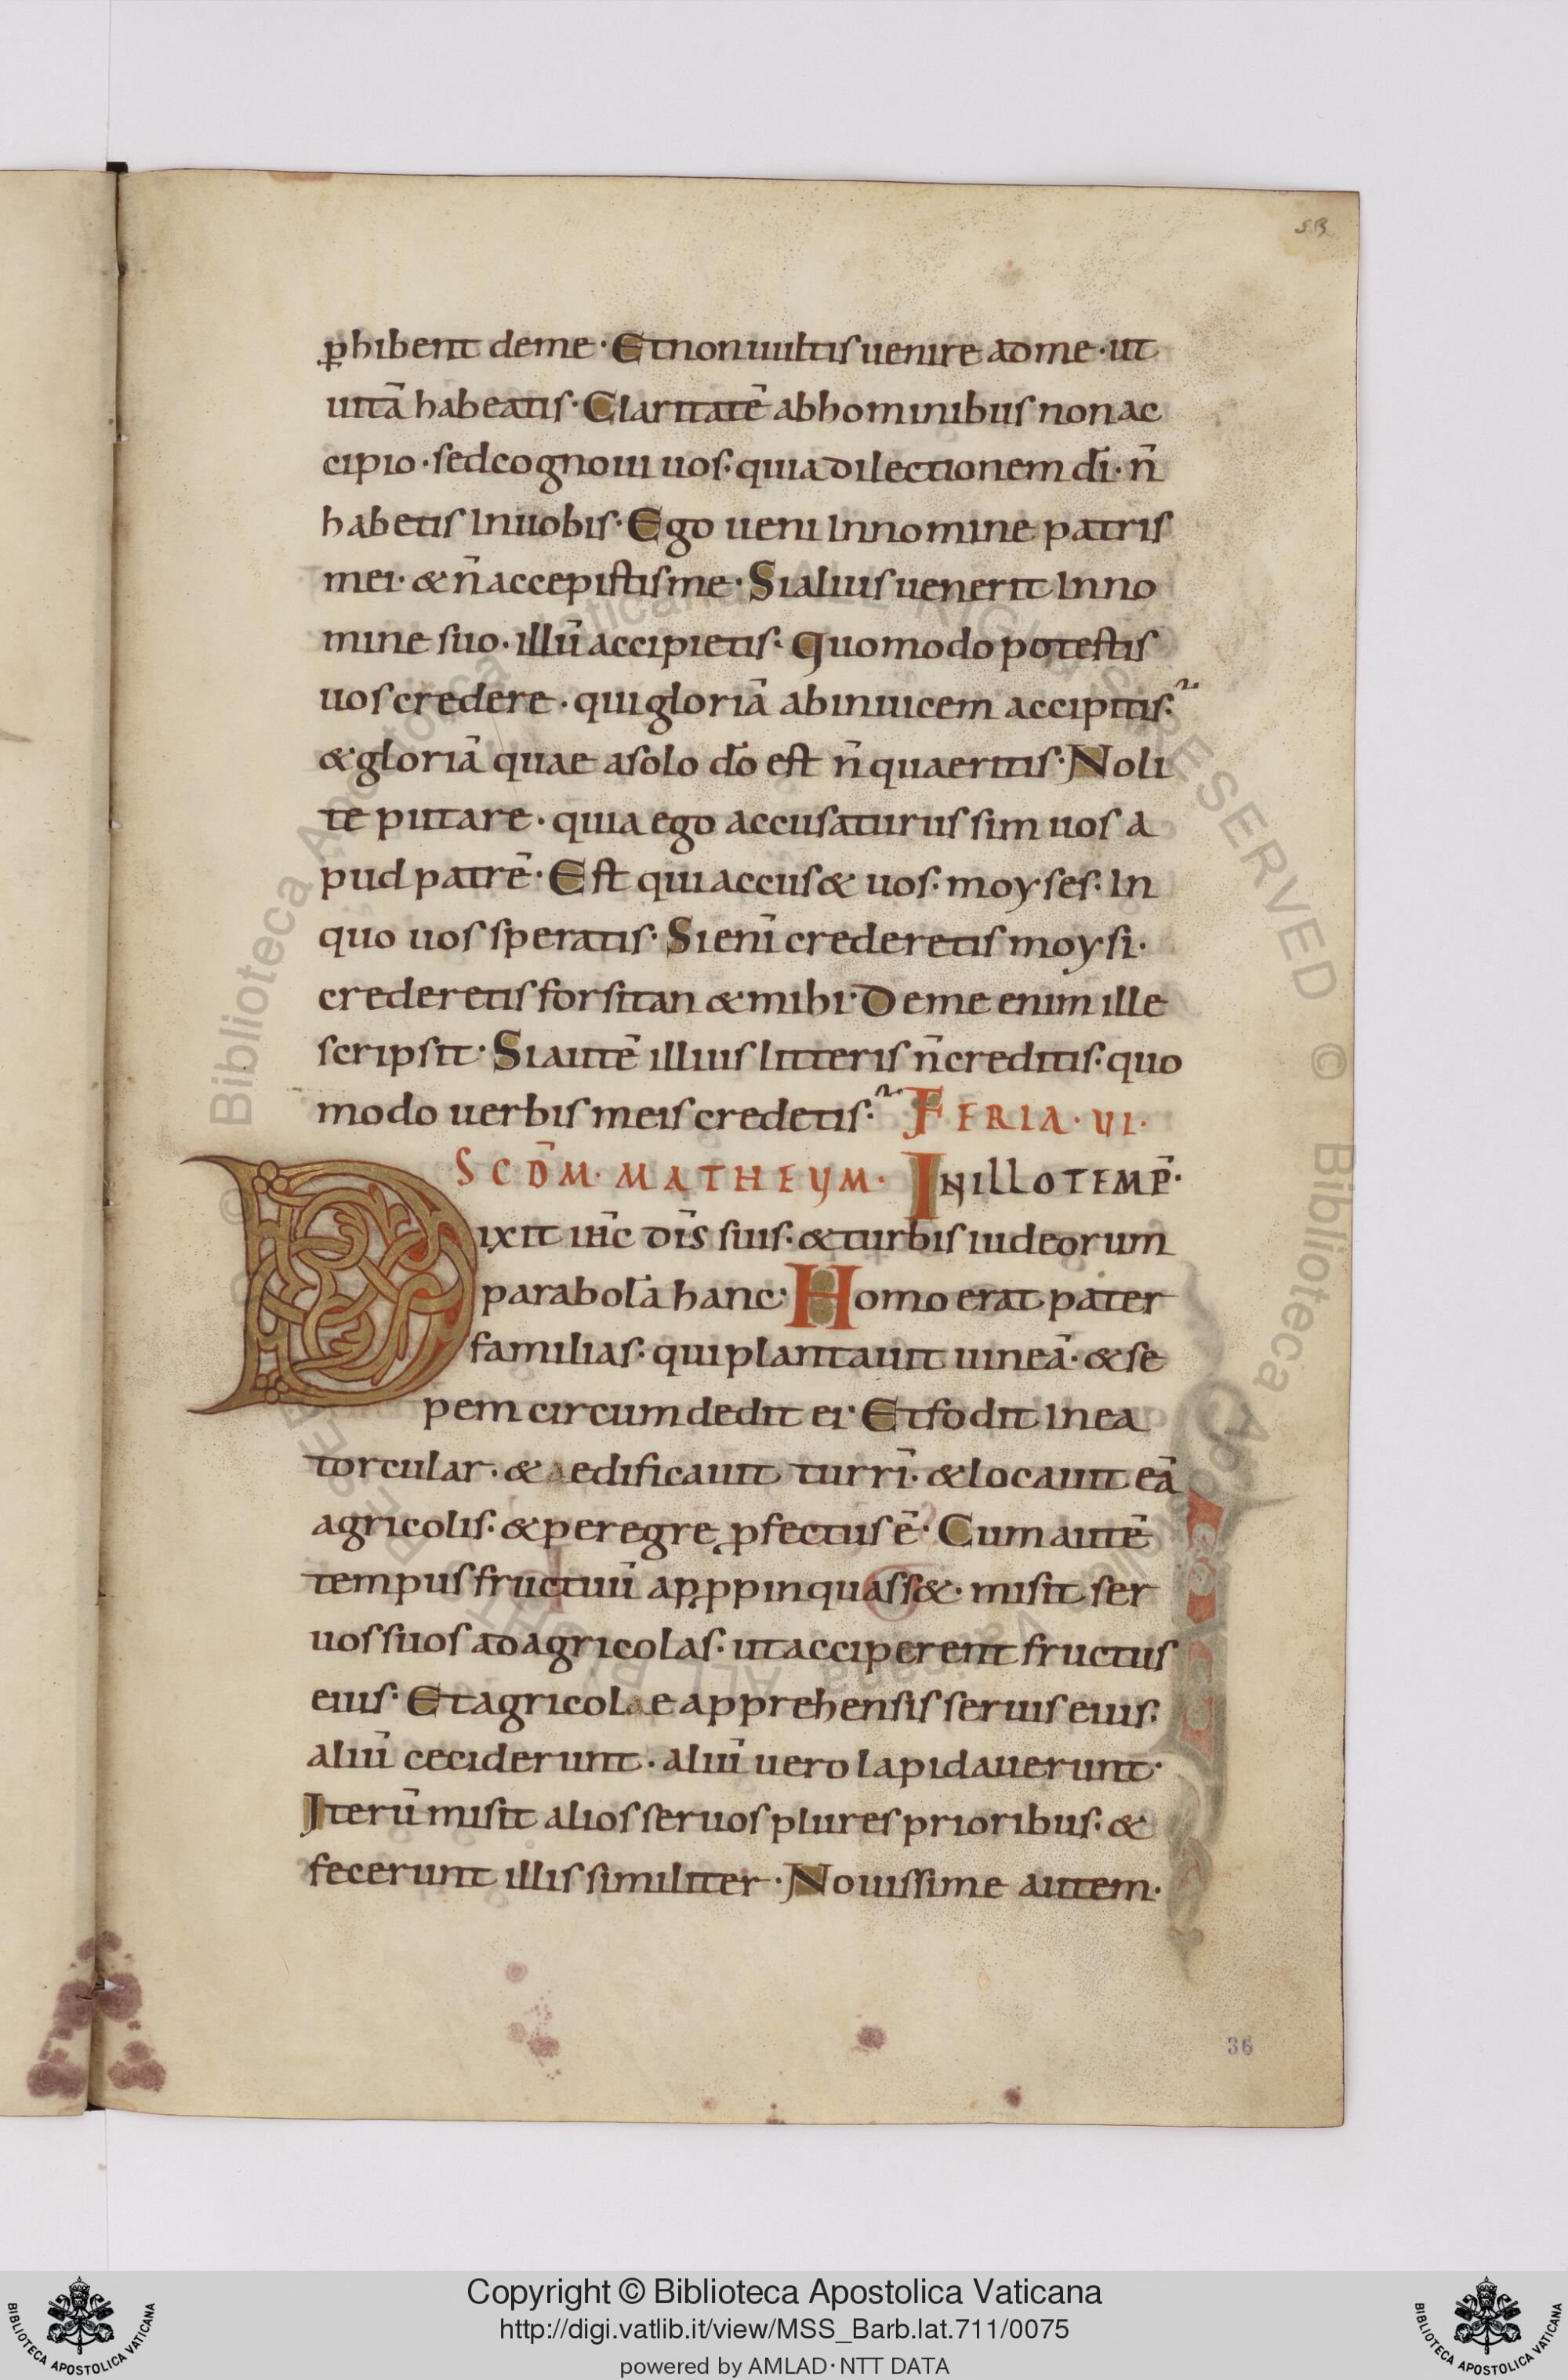 ꝑhibent deme· Et non uultis uenire ad me· ut
uitā habeatis· Claritatē ab hominibus non ac
cipio· sed cognoui uos· quia dilectionem dī· n̄
habetis in uobis· Ego ueni in nomine patris
mei· & n̄ accepistis me· Si alius uenerit in no
mine suo· illū accipietis· Quomodo potestis
uos credere· qui gloriā ab inuicem accipitis·
& gloriā quae a solo dō est n̄ quaeritis· Noli
te putare· quia ego accusaturus sim uos a
pud patrē· Est qui accus& uos· moyses· In
quo uos speratis· Si enī crederetis moysi·
crederetis forsitan & mihi· De me enim ille
scripsit· Si autē illius litteris n̄ creditis· quo
modo uerbis meis credetis· FERIA· VI·
SCDM̄· MATHEUM· IN ILLO TEMP̄·
Dixit iħc dīs suis· & turbis iudeorum
parabolā hanc· Homo erat pater
familias· qui plantauit uineā· & se
pem circumdedit ei· Et fodit in ea
torcular· & aedificauit turrī· & locauit eā
agricolis· & peregre ꝓfectus ē· Cum autē
tempus fructuū apꝓpinquass&· misit ser
uos suos ad agricolas· ut acciperent fructus
eius· Et agricolae apprehensis seruis eius·
aliū ceciderunt· aliū uero lapidauerunt·
Iterū misit alios seruos plures prioribus· &
fecerunt illis similiter· Nouissime autem·
36
© Biblioteca Apostolica Vaticana ALL RIGHTS RESERVED
Copyright © Biblioteca Apostolica Vaticana
http://digi.vatlib.it/view/MSS_Barb.lat.711/0075
powered by AMLAD·NTT DATA
BIBLIOTECA APOSTOLICA VATICANA
BIBLIOTECA APOSTOLICA VATICANA